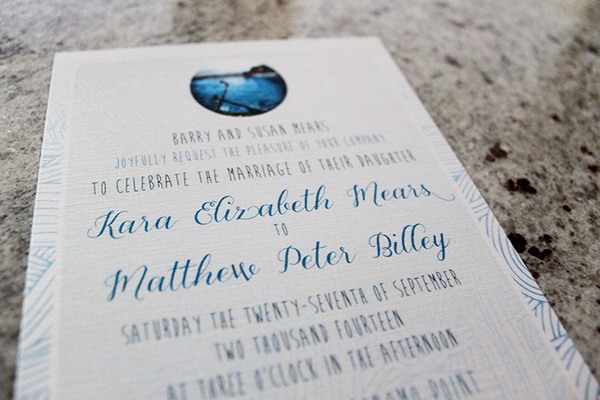 BARRY AND SUSAN MEARS
JOYFULLY REQUEST THE PLEASURE OF YOUR COMPANY
TO CELEBRATE THE MARRIAGE OF THEIR DAUGHTER
Kara Elizabeth Mears
TO
Matthew Peter Billey
SATURDAY THE TWENTY-SEVENTH OF SEPTEMBER
TWO THOUSAND FOURTEEN
AT THREE O'CLOCK IN THE AFTERNOON
POINT